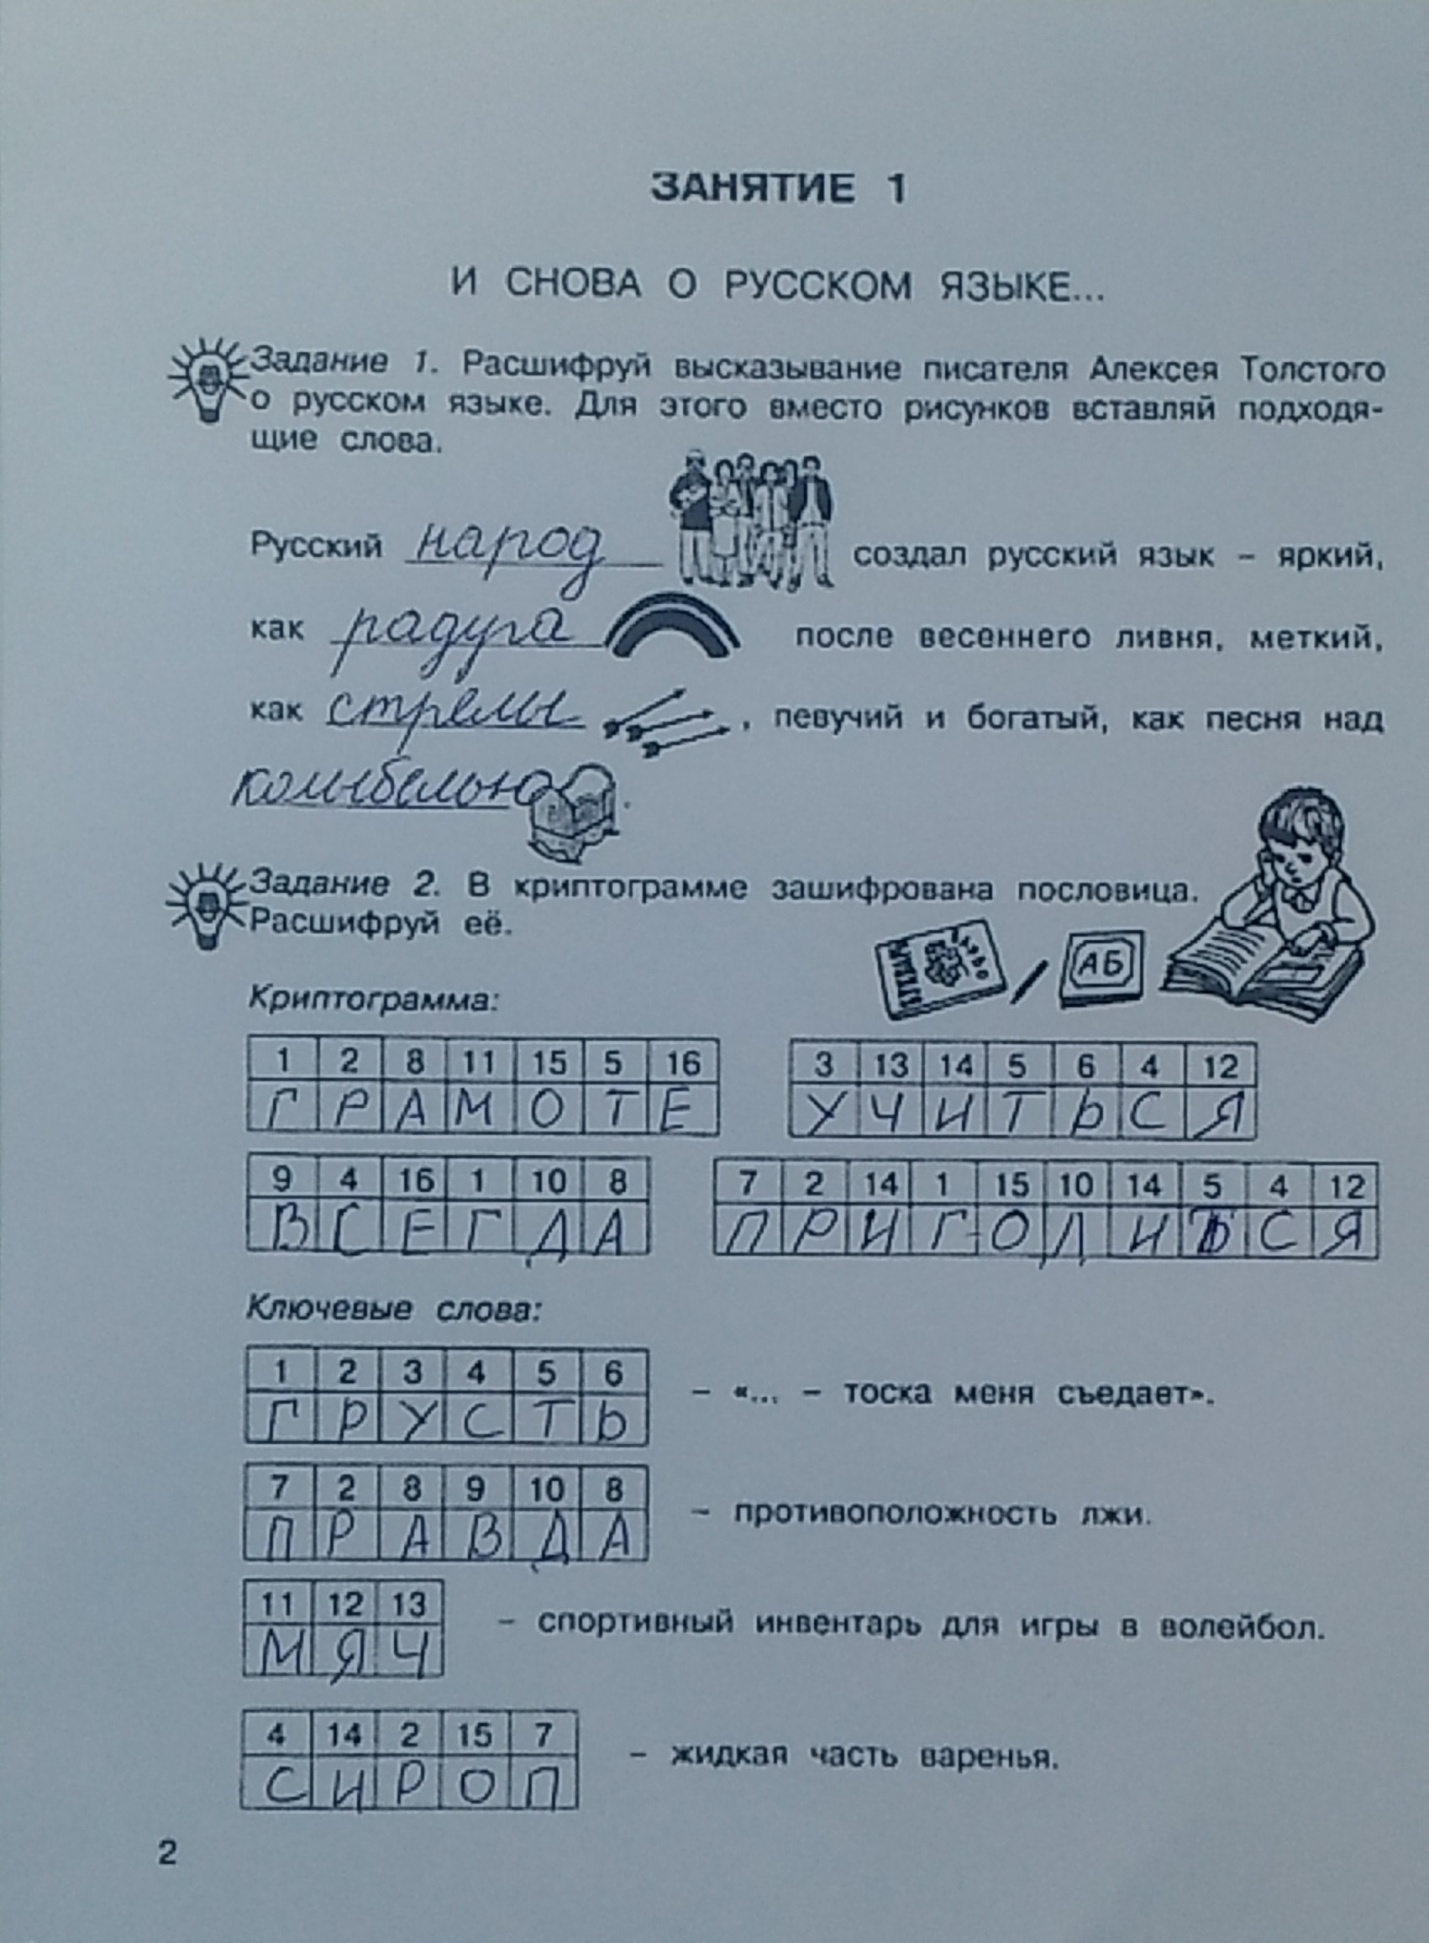 ЗАНЯТИЕ 1
И СНОВА О РУССКОМ ЯЗЫКЕ...
Задание 1. Расшифруй высказывание писателя Алексея Толстого
о русском языке. Для этого вместо рисунков вставляй подходя-
щие слова.
Русский народ создал русский язык – яркий,
как радуга после весеннего ливня, меткий,
как стрелы , певучий и богатый, как песня над
колыбелью .
Задание 2. В криптограмме зашифрована пословица.
Расшифруй её.
АБ
Криптограмма:
1 2 8 11 15 5 16 3 13 14 5 6 4 12
Г Р А М О Т Е У Ч И Т Ь С Я
9 4 16 1 10 8 7 2 14 1 15 10 14 5 4 12
В С Е Г Д А П Р И Г О Д И Т С Я
Ключевые слова:
1 2 3 4 5 6
Г Р У С Т Ь – «... – тоска меня съедает».
7 2 8 9 10 8
П Р А В Д А – противоположность лжи.
11 12 13
М Я Ч – спортивный инвентарь для игры в волейбол.
4 14 2 15 7
С И Р О П – жидкая часть варенья.
2